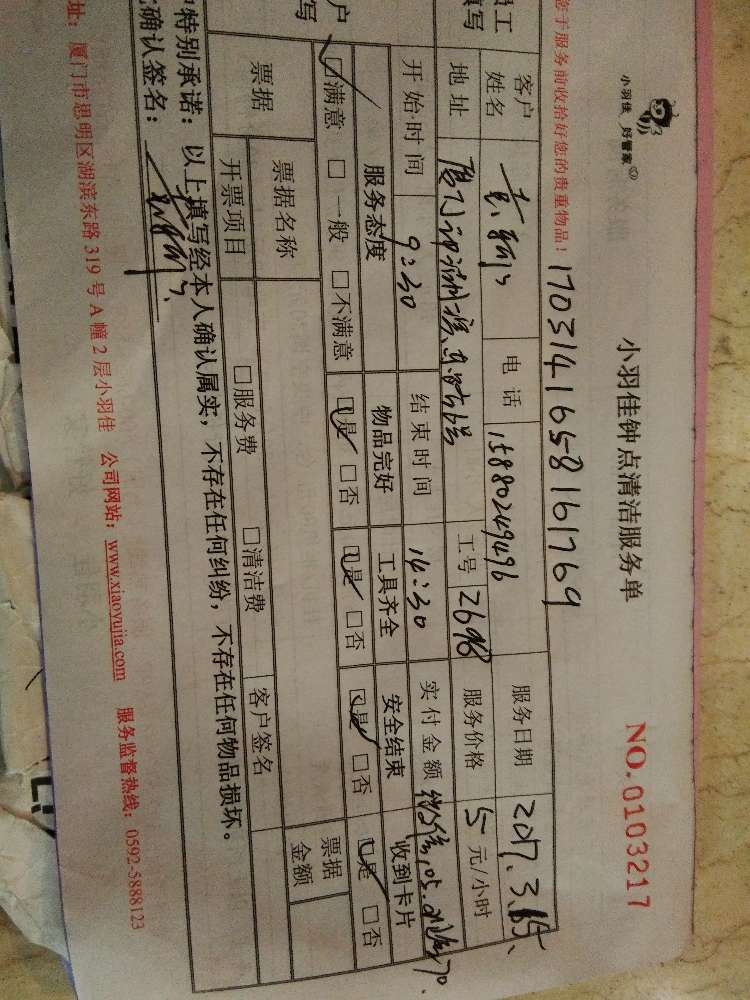 小羽佳 好管家
小羽佳钟点清洁服务单
NO.0103217
您于服务前收拾好您的贵重物品！
1703141658161769
员工
填写
客户
姓名
电话
15880249496
服务日期
2017.3.15
地址
工号
2698
服务价格
5 元/小时
开始时间
9:30
结束时间
14:30
实付金额
服务态度
物品完好
工具齐全
安全结束
收到卡片
户
写
□满意 □一般 □不满意
□是 □否
□是 □否
□是 □否
□是 □否
票据
票据名称
票据
金额
开票项目
□服务费 □清洁费
客户签名
特别承诺：以上填写经本人确认属实，不存在任何纠纷，不存在任何物品损坏。
确认签名：
址：厦门市思明区湖滨东路 319 号 A 幢 2 层小羽佳 公司网站：www.xiaoyujia.com 服务监督热线：0592-5888123